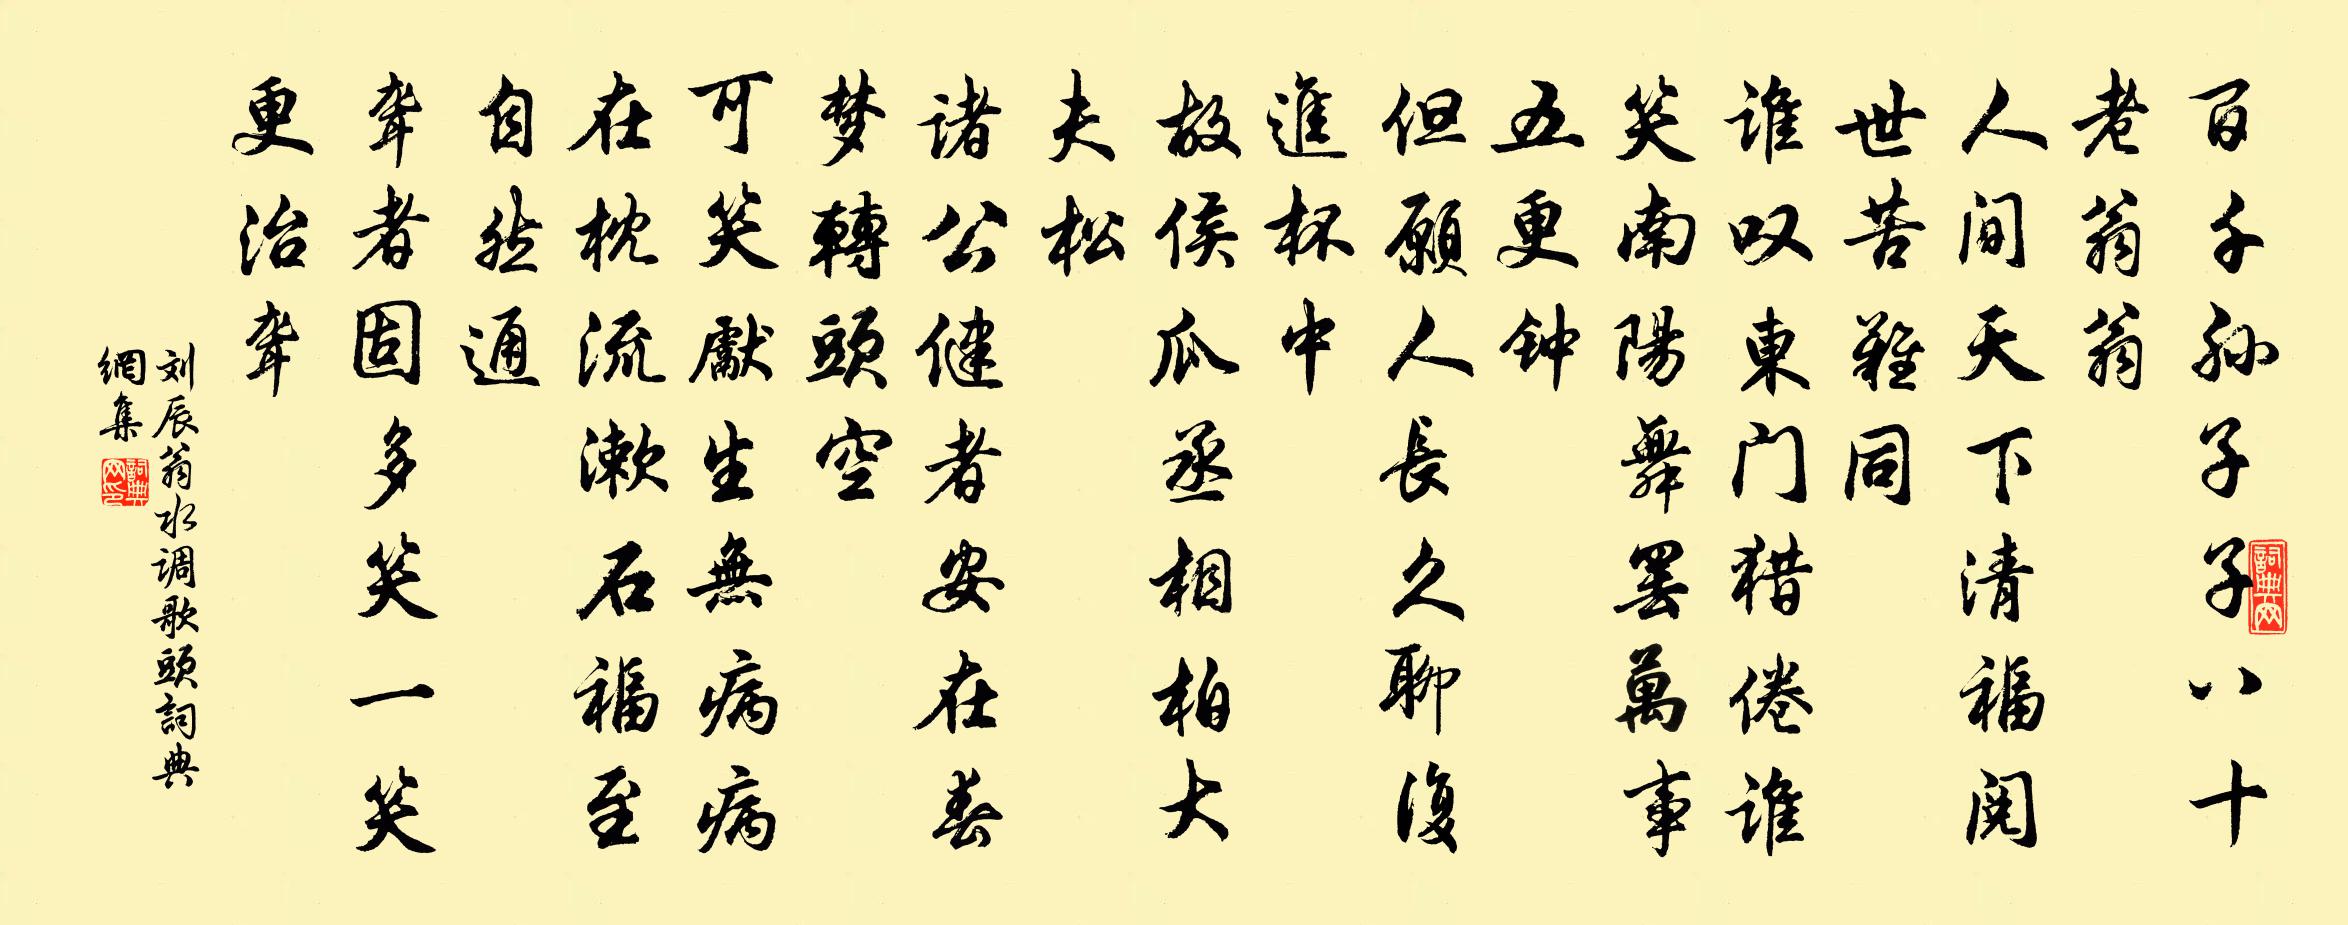 百千孙子子八十
老翁翁
人间天下清福阅
世苦难同
谁叹東门猎倦谁
笑南陽舞罢萬事
五更钟
但願人長久聊復
進杯中
故侯瓜丞相柏大
夫松
诸公健者安在春
梦轉頭空
可笑獻生無病病
在枕流漱石福至
自然通
聋者固多笑一笑
更治聋
刘辰翁水调歌頭詞典
網集
詞典网
詞典网印